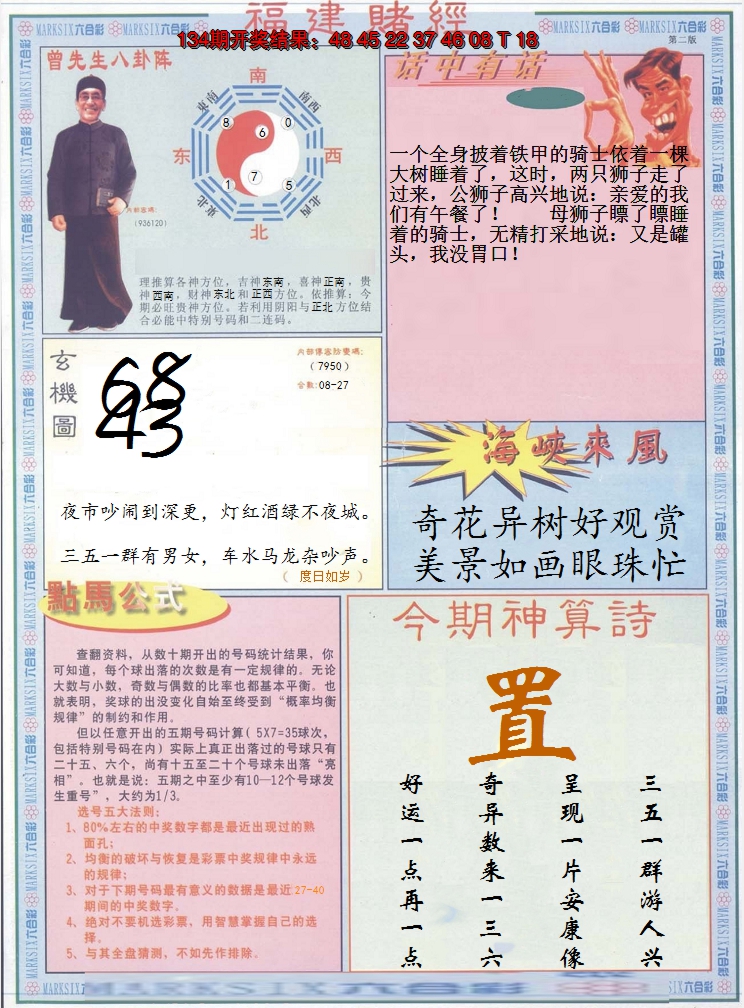 福建賭經
134期开奖结果：48 45 22 37 46 08 T 18
第二版
MARKSIX六合彩
曾先生八卦阵
南
东南
南西
8
6
0
东
西
1
7
5
东北
北西
北
内部密碼:
(936120)
理推算各神方位，吉神东南，喜神正南，贵
神西南，财神东北和正西方位。依推算：今
期必旺贵神方位。若利用阴阳与正北方位结
合必能中特别号码和二连码。
话中有话
一个全身披着铁甲的骑士依着一棵
大树睡着了，这时，两只狮子走了
过来，公狮子高兴地说：亲爱的我
们有午餐了！　　母狮子瞟了瞟睡
着的骑士，无精打采地说：又是罐
头，我没胃口！
玄機圖
68
43
（7950）
合数:08-27
夜市吵闹到深更，灯红酒绿不夜城。
三五一群有男女，车水马龙杂吵声。
（ 度日如岁 ）
海峽來風
奇花异树好观赏
美景如画眼珠忙
點馬公式
查翻资料，从数十期开出的号码统计结果，你
可知道，每个球出落的次数是有一定规律的。无论
大数与小数，奇数与偶数的比率也都基本平衡。也
就表明，奖球的出没变化自始至终受到“概率均衡
规律”的制约和作用。
但以任意开出的五期号码计算( 5X7=35球次，
包括特别号码在内）实际上真正出落过的号球只有
二十五、六个，尚有十五至二十个号球未出落“亮
相”。也就是说：五期之中至少有10—12个号球发
生重号”，大约为1/3。
选号五大法则：
1、80%左右的中奖数字都是最近出现过的熟
面孔；
2、均衡的破坏与恢复是彩票中奖规律中永远
的规律；
3、对于下期号码最有意义的数据是最近27-40
期间的中奖数字。
4、绝对不要机选彩票，用智慧掌握自己的选
择。
5、与其全盘猜测，不如先作排除。
今期神算詩
置
三五一群游人兴
呈现一片安康像
奇异数来一三六
好运一点再一点